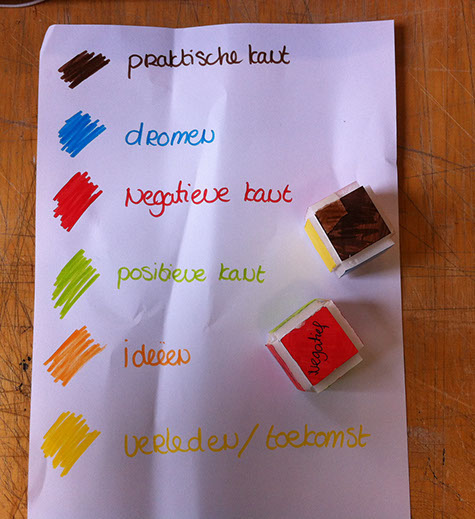 praktische kant
dromen
Negatieve kant
positieve kant
ideeën
verleden/toekomst
Negatief